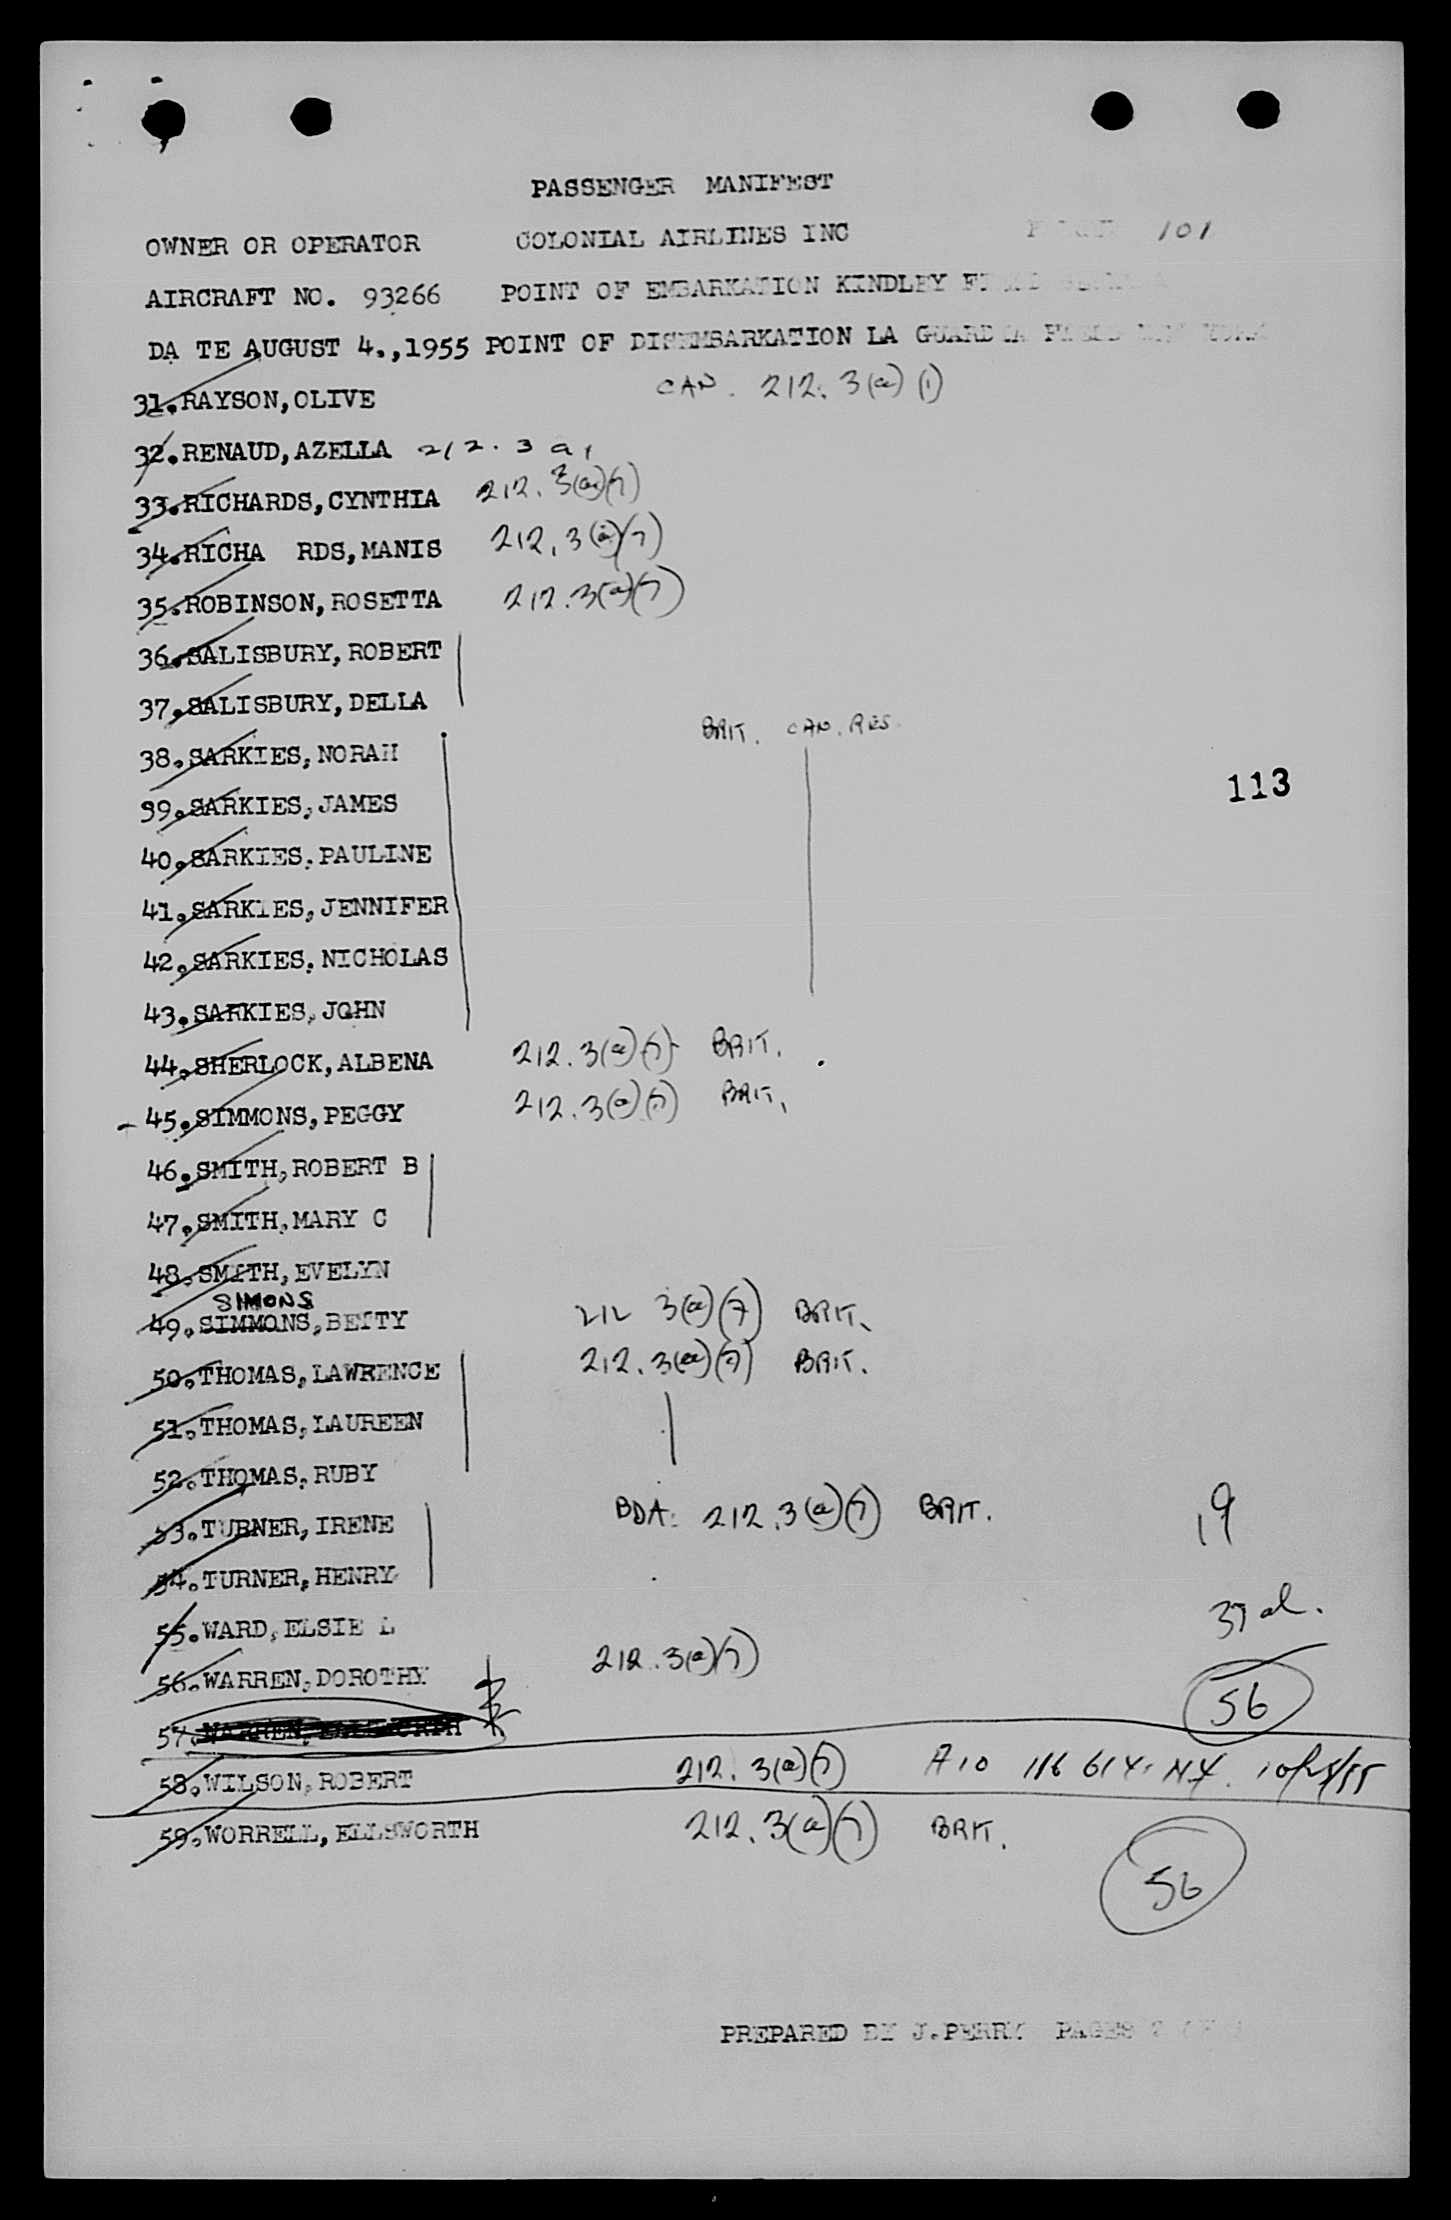 PASSENGER MANIFEST
OWNER OR OPERATOR COLONIAL AIRLINES INC 101
AIRCRAFT NO. 93266 POINT OF EMBARKATION KINDLEY
DA TE AUGUST 4.,1955 POINT OF DISEMBARKATION LA GUARDIA FIELD NEW YORK
31.RAYSON,OLIVE CAN. 212.3(a)(1)
32.RENAUD,AZELLA 212.3 a 1
33.RICHARDS,CYNTHIA 212.3(a)(7)
34.RICHA RDS,MANIS 212.3(a)(7)
35.ROBINSON,ROSETTA 212.3(a)(7)
36.SALISBURY,ROBERT
37.SALISBURY,DELLA
BRIT. CAN. RES.
38.SARKIES,NORAH
39.SARKIES,JAMES
113
40.SARKIES.PAULINE
41.SARKIES,JENNIFER
42.SARKIES.NICHOLAS
43.SARKIES,JOHN
44.SHERLOCK,ALBENA 212.3(a)(7) BRIT.
45.SIMMONS,PEGGY 212.3(a)(7) BRIT.
46.SMITH,ROBERT B
47.SMITH,MARY C
48.SMITH,EVELYN
SIMONS
49.SIMMONS,BETTY 212 3(a)(7) BRIT.
50.THOMAS,LAWRENCE 212.3(a)(7) BRIT.
51.THOMAS,LAUREEN
52.THOMAS.RUBY
53.TURNER,IRENE BDA. 212.3(a)(7) BRIT. 19
54.TURNER,HENRY
55.WARD,ELSIE L 37 al.
56.WARREN,DOROTHY 212.3(a)(7)
57. 56
58.WILSON,ROBERT 212.3(a)(7) A10
59.WORRELL,ELLSWORTH 212.3(a)(7) BRIT.
56
PREPARED BY J.PERRY PAGES